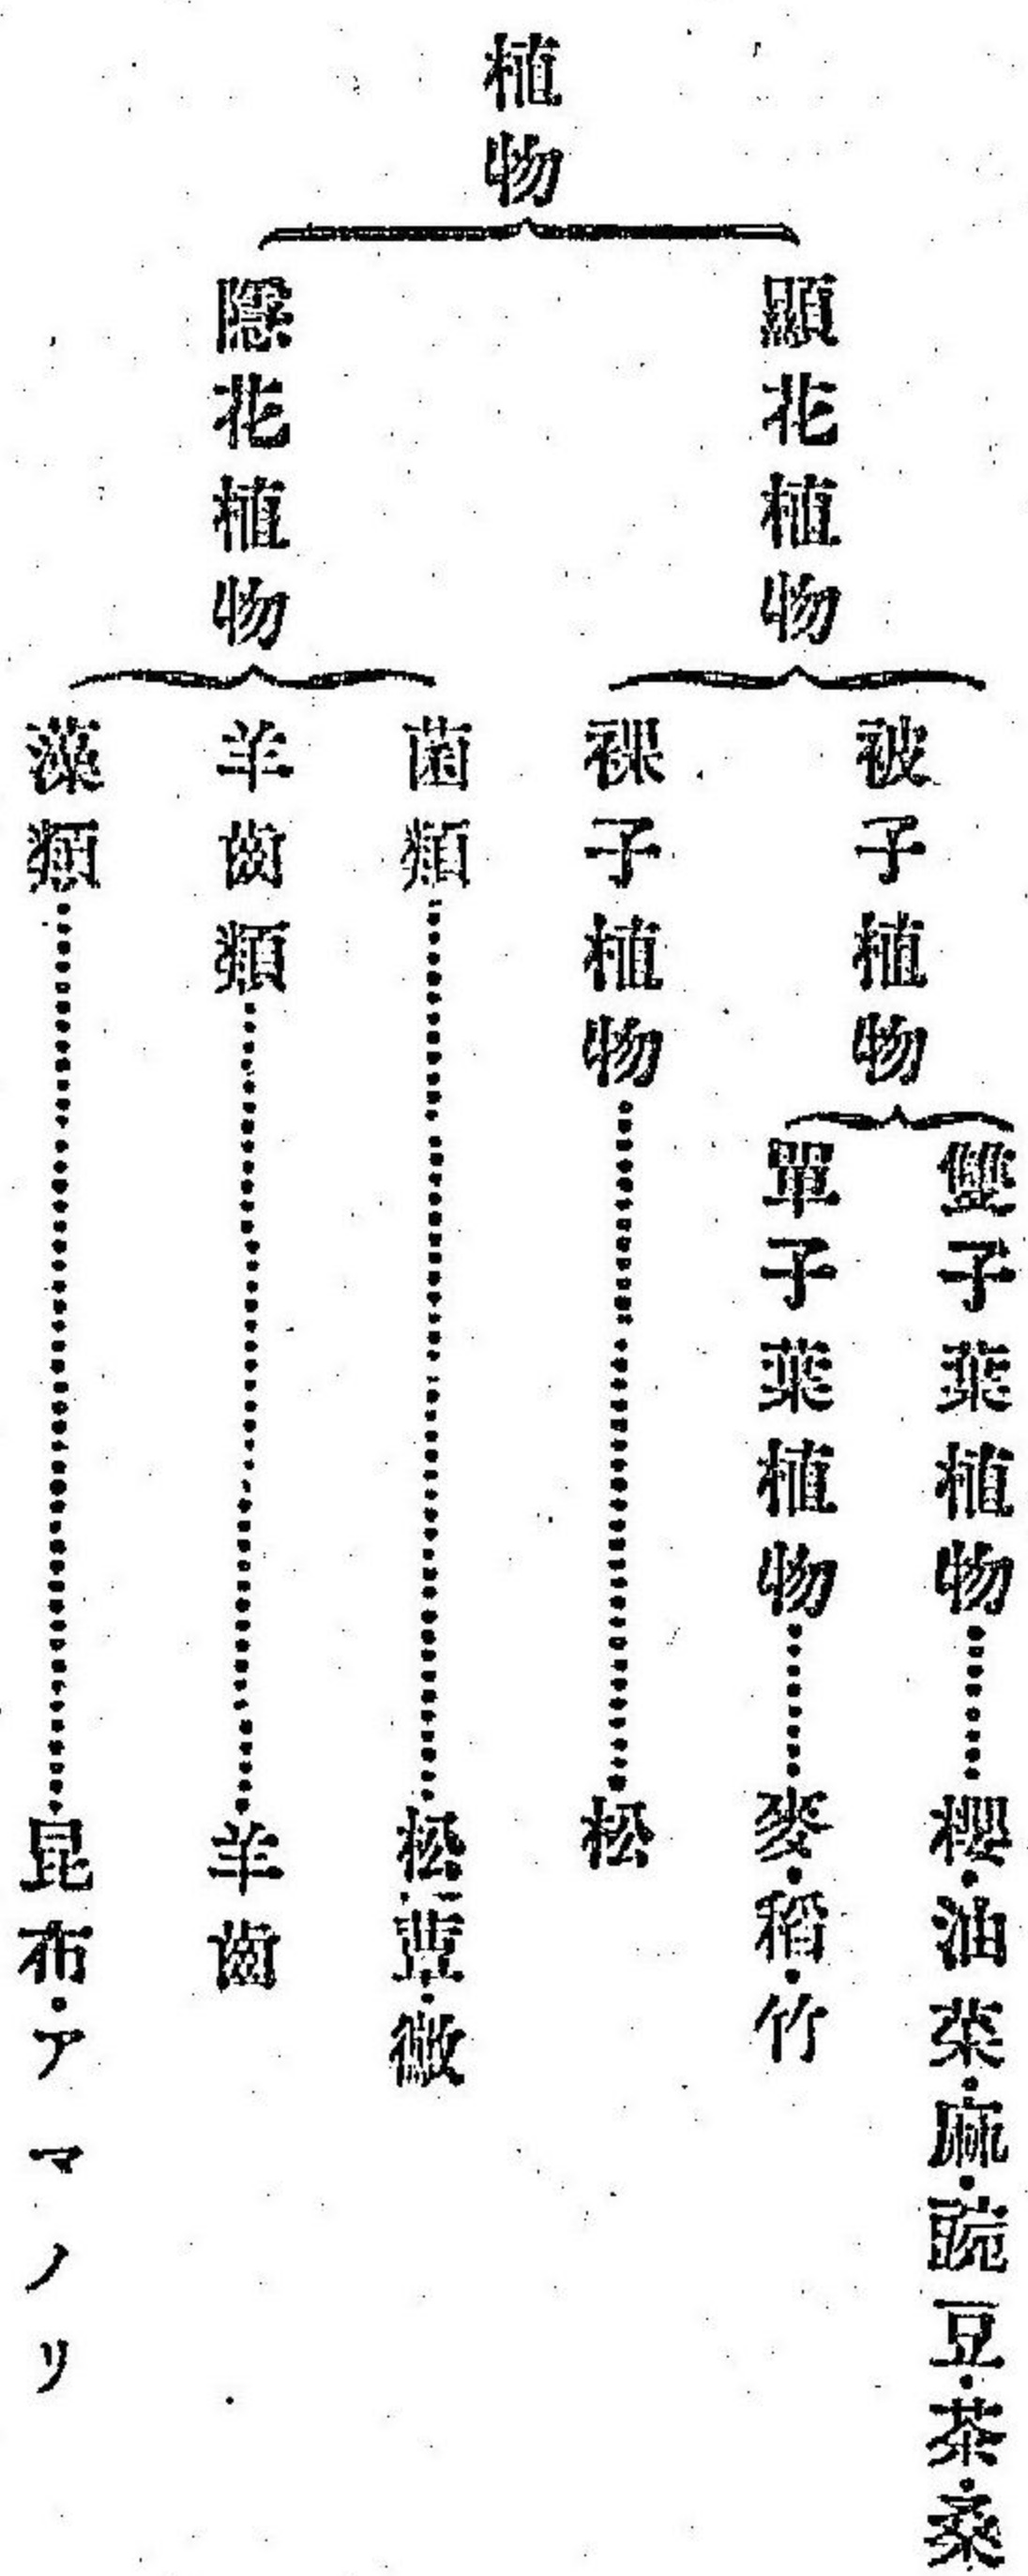 植物
顯花植物
被子植物
雙子葉植物……櫻・油菜・麻・豌豆・茶・桑
單子葉植物……麥・稻・竹
裸子植物……松
隱花植物
菌類……松蕈・黴
羊齒類……羊齒
藻類……昆布・アマノリ